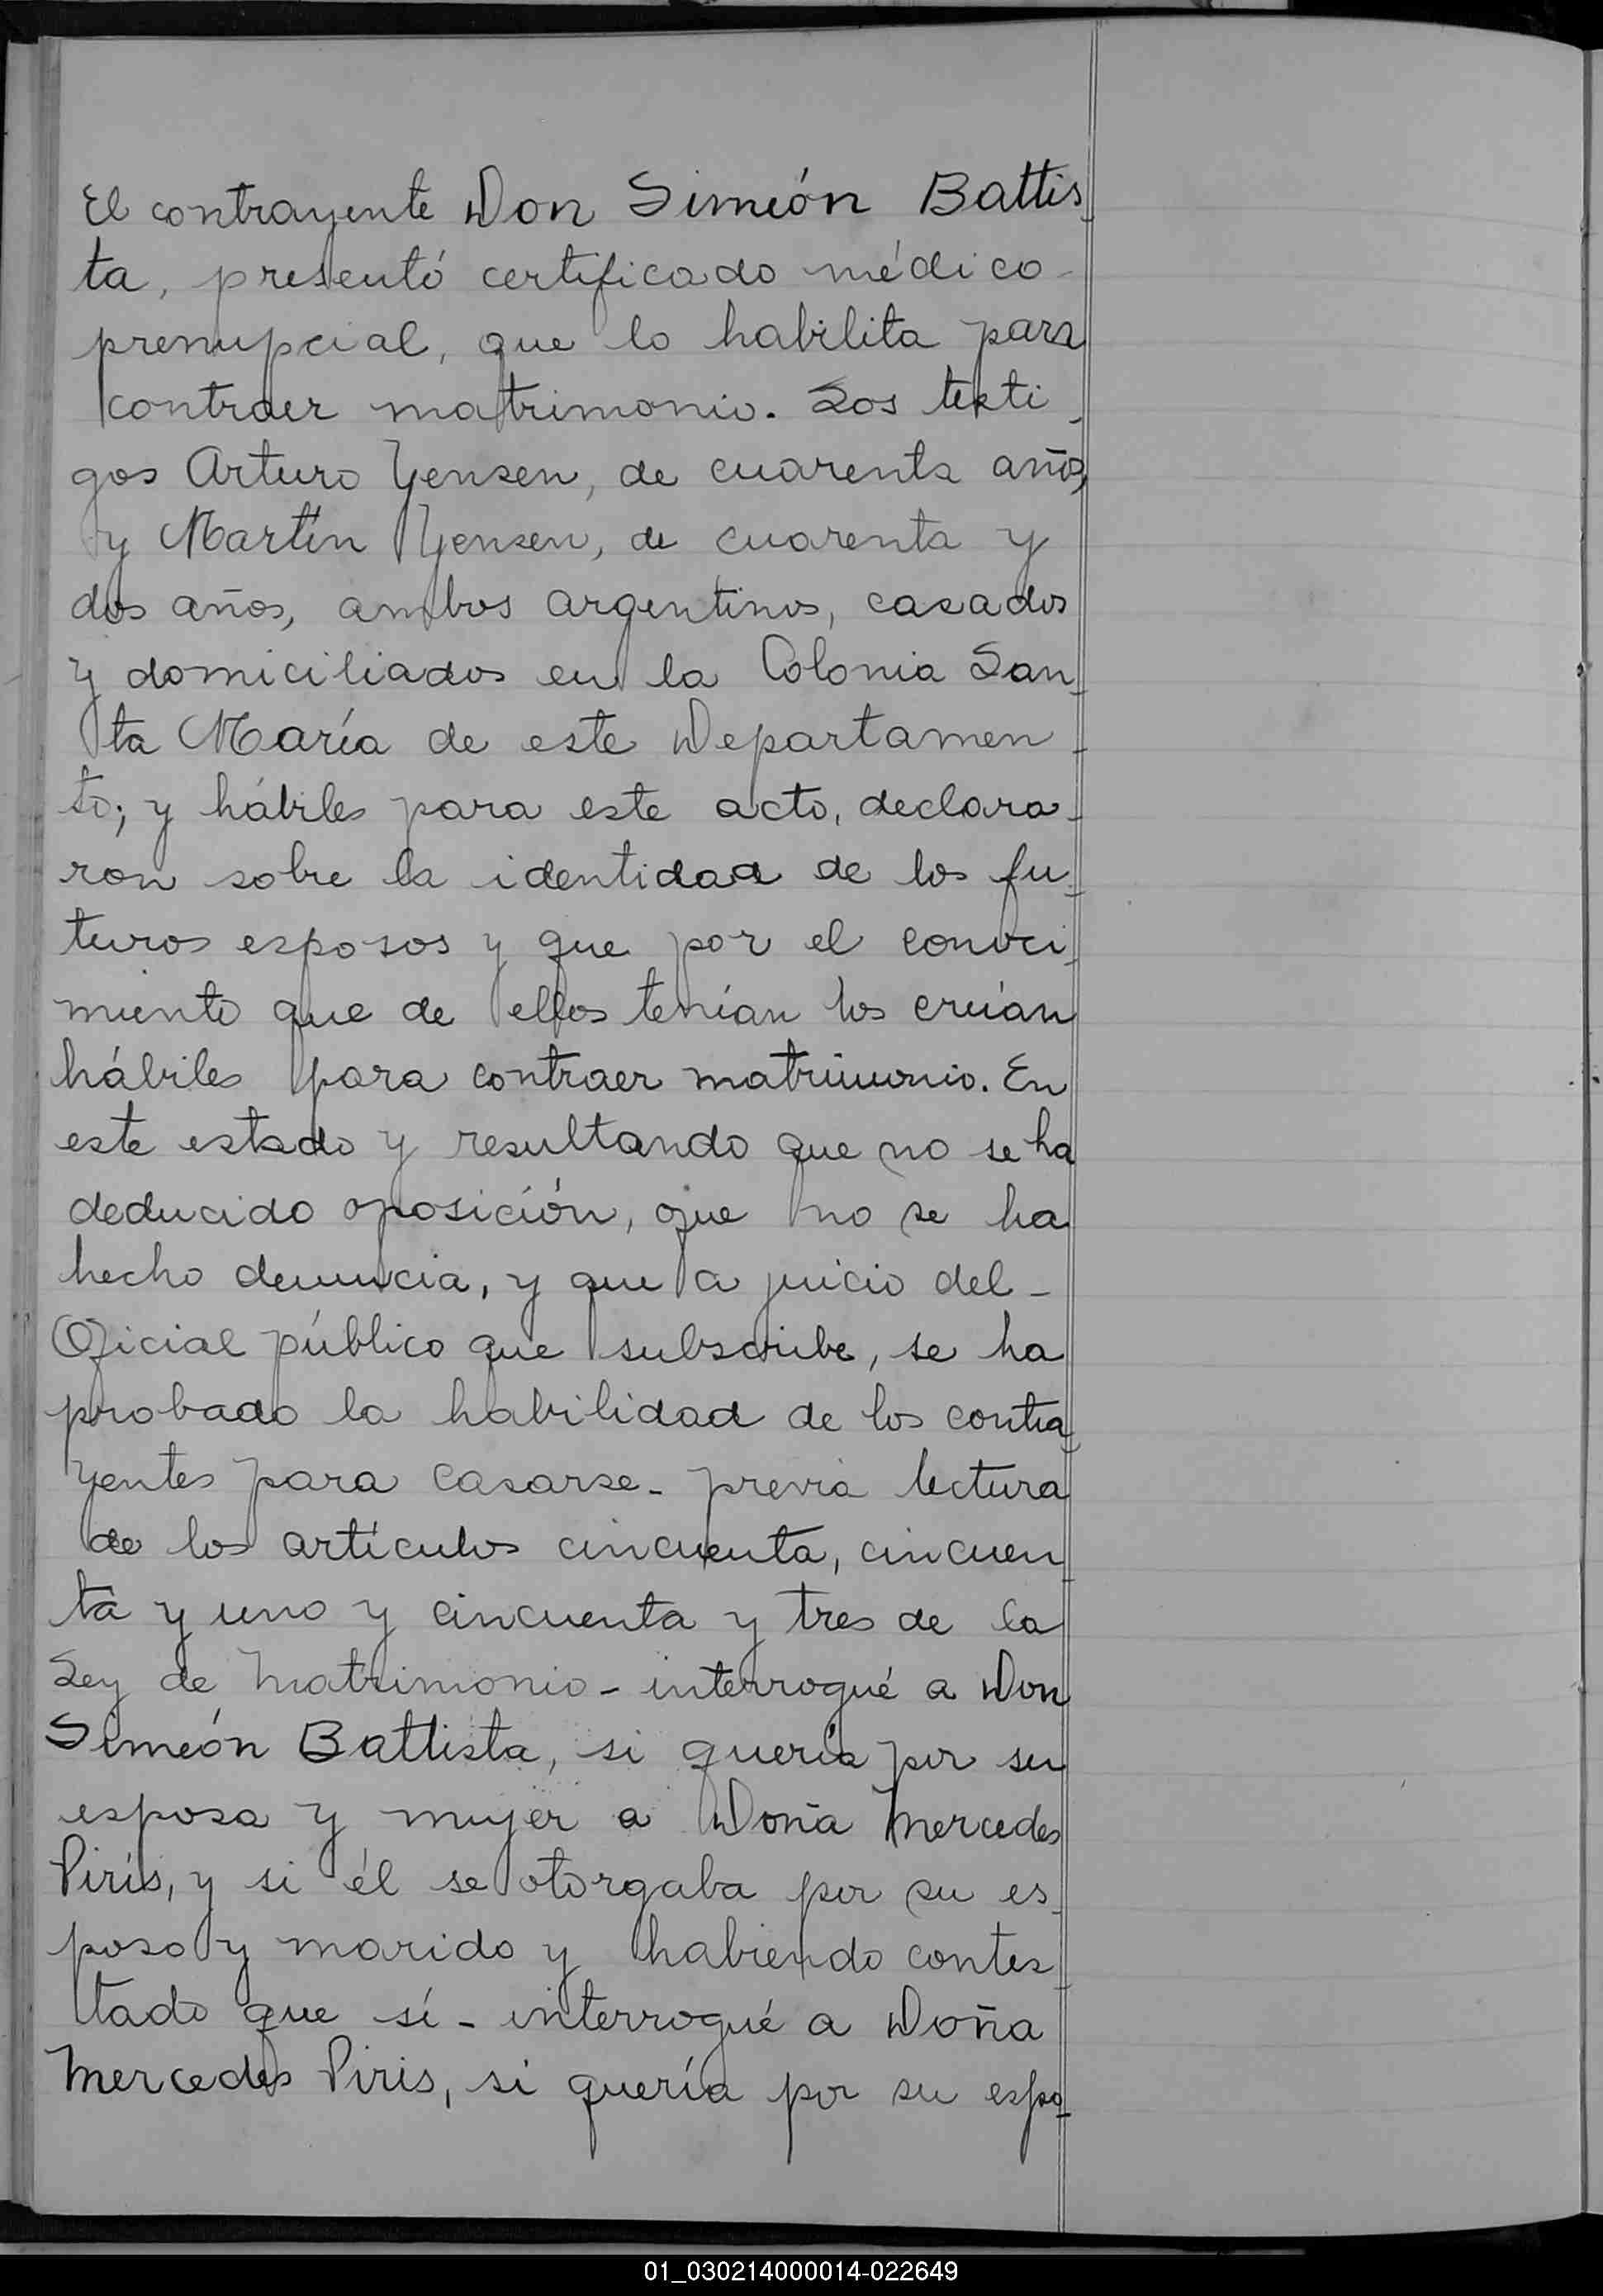 El contrayente Don Simeón Battis-
ta, presentó certificado médico-
prenupcial, que lo habilita para
contraer matrimonio. Los testi-
gos Arturo Yensen, de cuarenta años,
y Martín Yensen, de cuarenta y
dos años, ambos argentinos, casados
y domiciliados en la Colonia San-
ta María de este Departamen-
to; y hábiles para este acto, declara-
ron sobre la identidad de los fu-
turos esposos y que por el conoci-
miento que de ellos tenían los creían
hábiles para contraer matrimonio. En
este estado y resultando que no se ha
deducido oposición, que no se ha
hecho denuncia, y que a juicio del-
Oficial público que subscribe, se ha
probado la habilidad de los contra-
yentes para casarse- previa lectura
de los artículos cincuenta, cincuen-
ta y uno y cincuenta y tres de la
Ley de Matrimonio- interrogué a Don
Simeón Battista, si quería por su
esposa y mujer a Doña Mercedes
Piris, y si él se otorgaba por su es-
poso y marido y habiendo contes-
tado que sí- interrogué a Doña
Mercedes Piris, si quería por su espo-
01_030214000014-022649